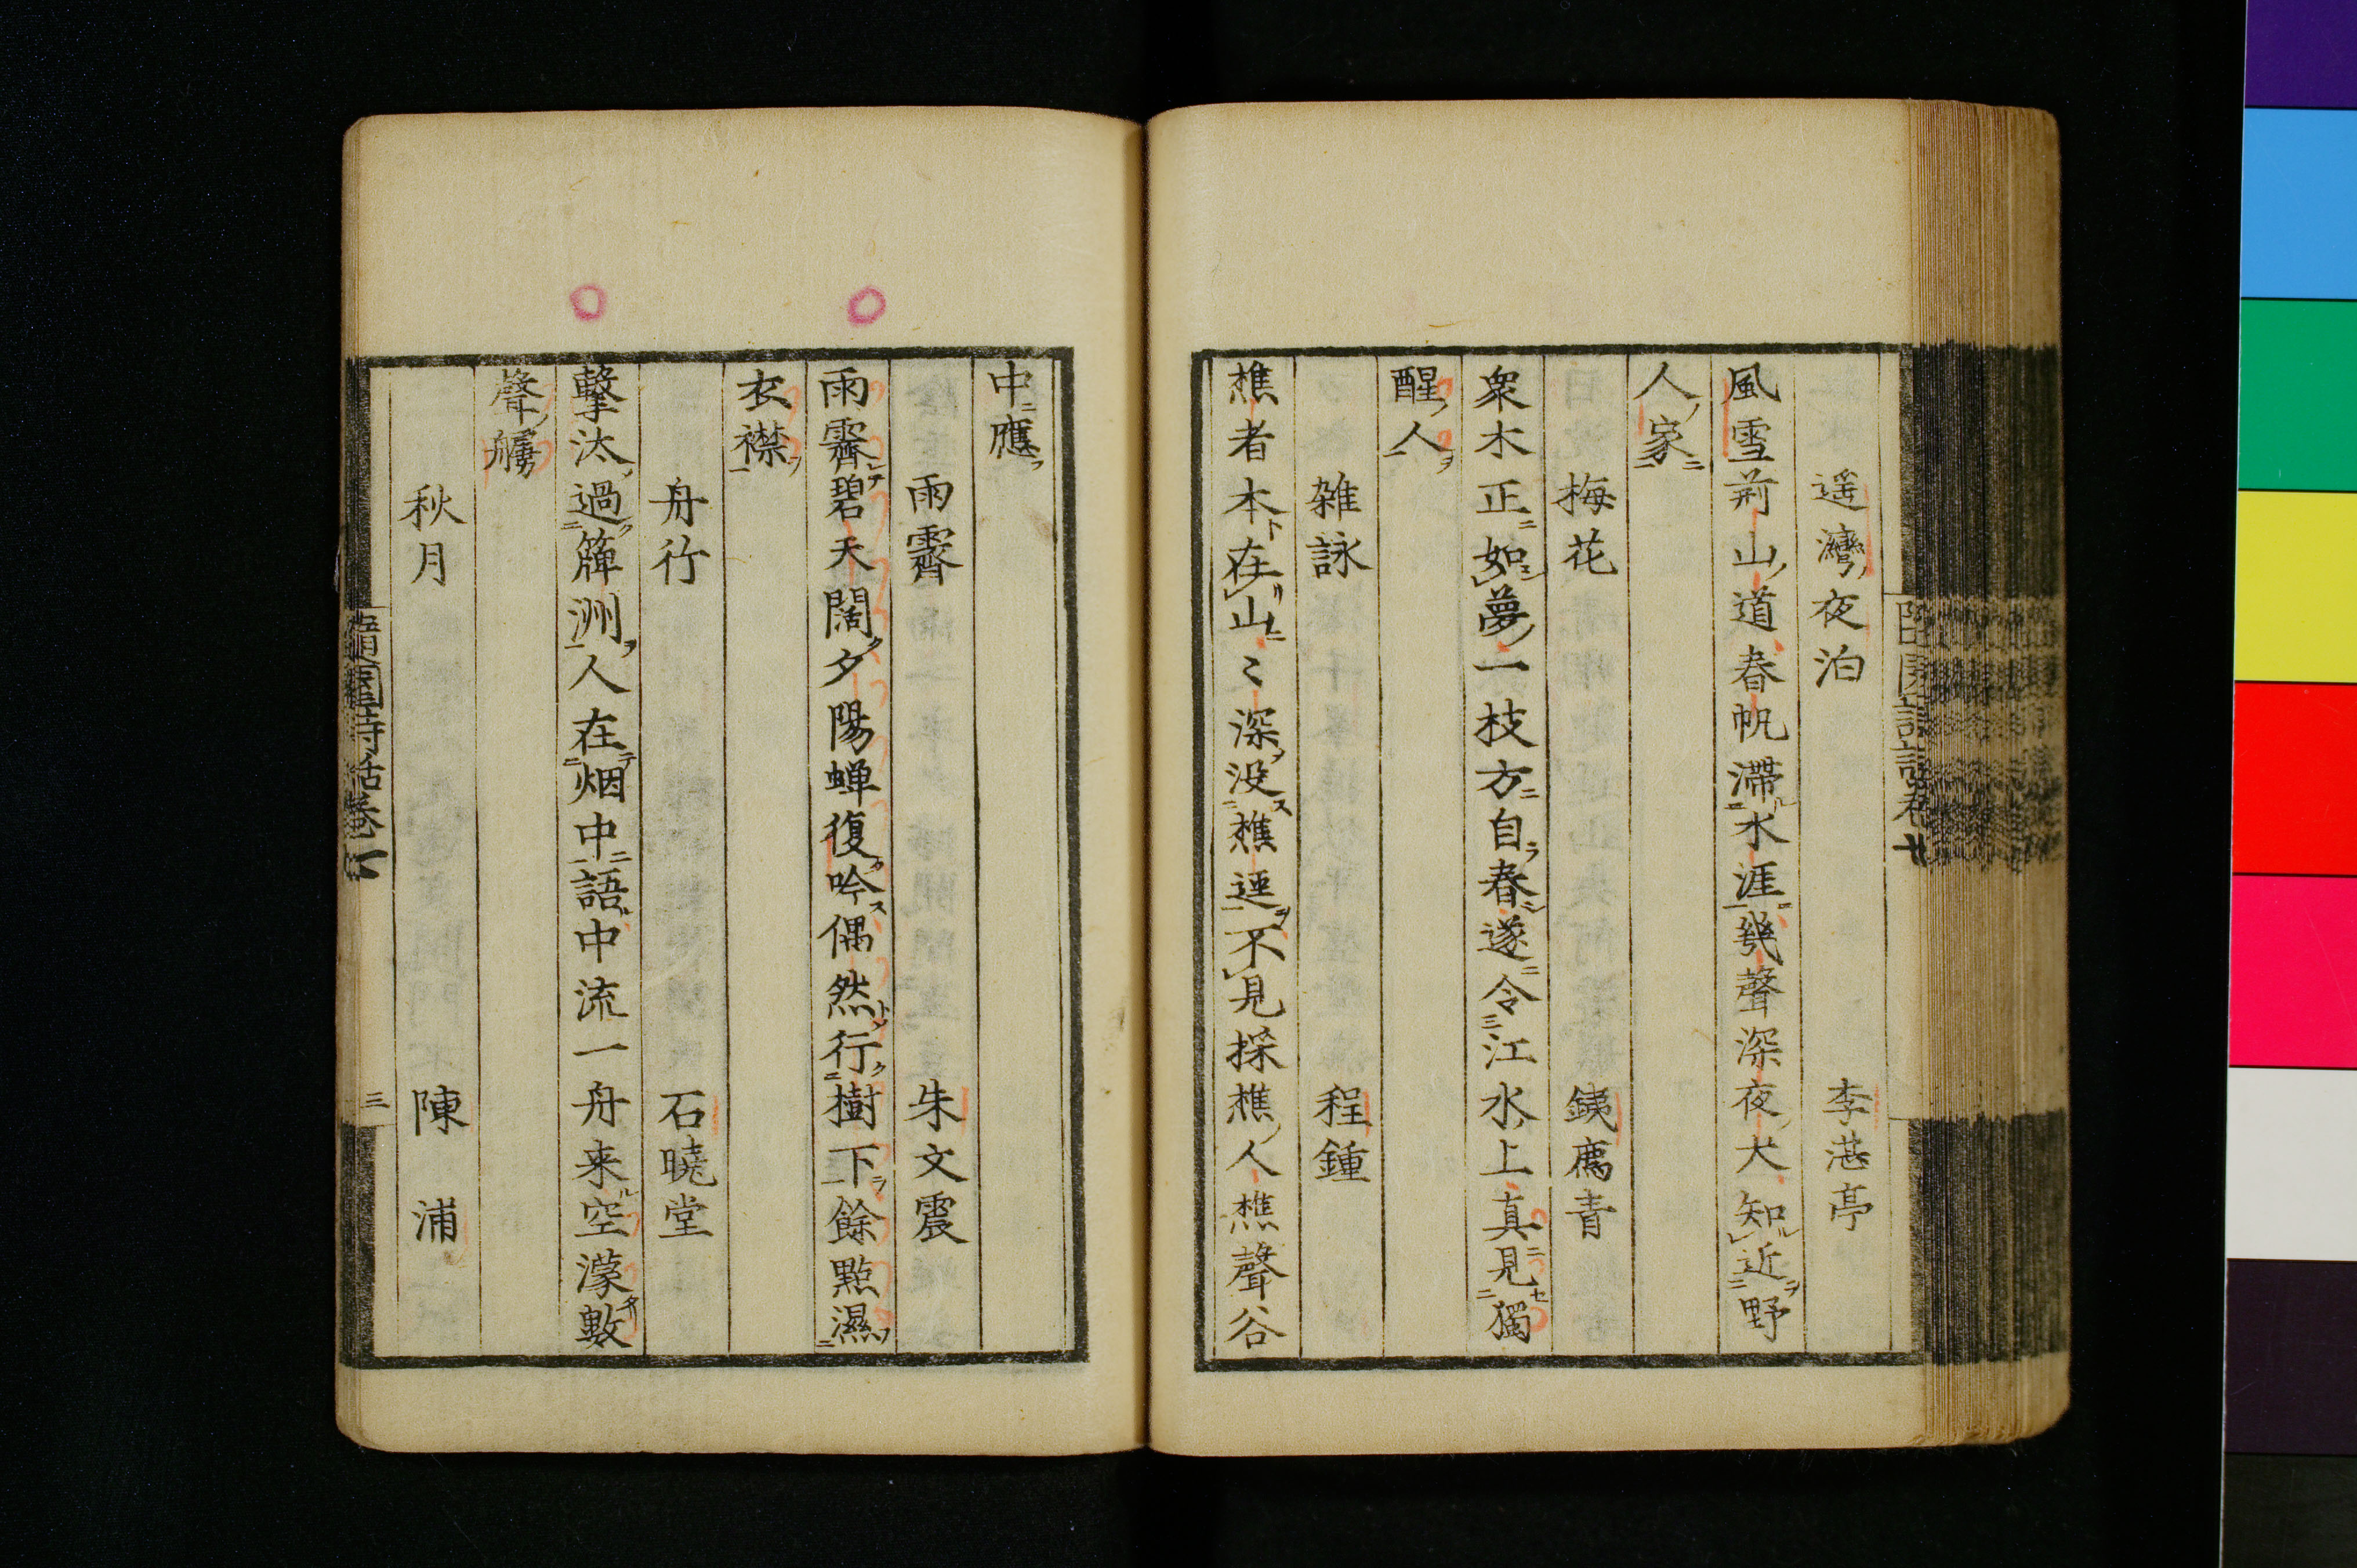 遥灣夜泊 李湛亭
風雪荊山道春帆滯水涯幾聲深夜犬知近野
人家
梅花 銕薦青
衆木正如夢一枝方自春遂令江水上真見獨
醒人
雑詠 程鍾
樵者本在山〻深没樵逕不見採樵人樵聲谷
中應
雨霽 朱文震
雨霽碧天闊夕陽蝉復吟偶然行樹下餘點濕
衣襟
舟行 石曉堂
擊汰過簰洲人在烟中語中流一舟来空濛數
聲艣
秋月 陳浦
隨園詩話卷
三